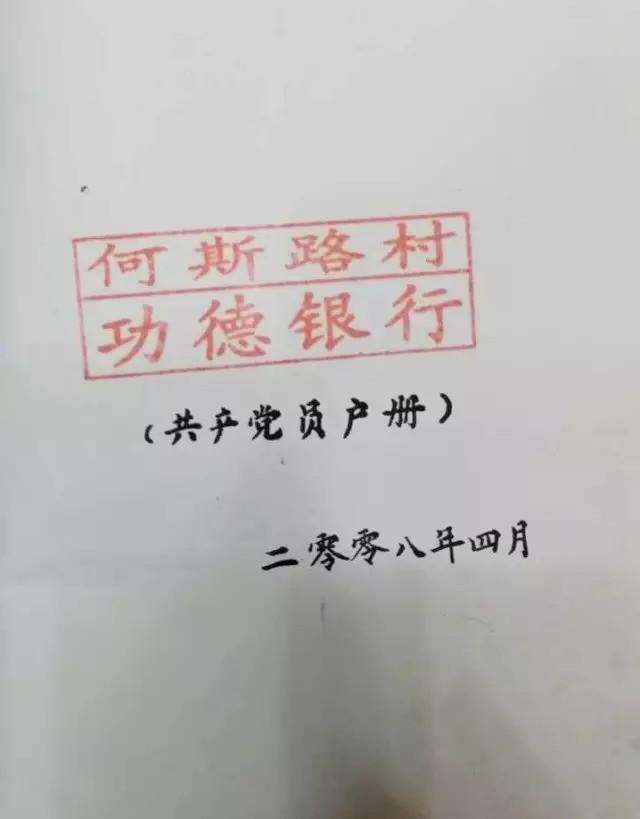 何斯路村
功德银行
（共产党员户册）
二零零八年四月